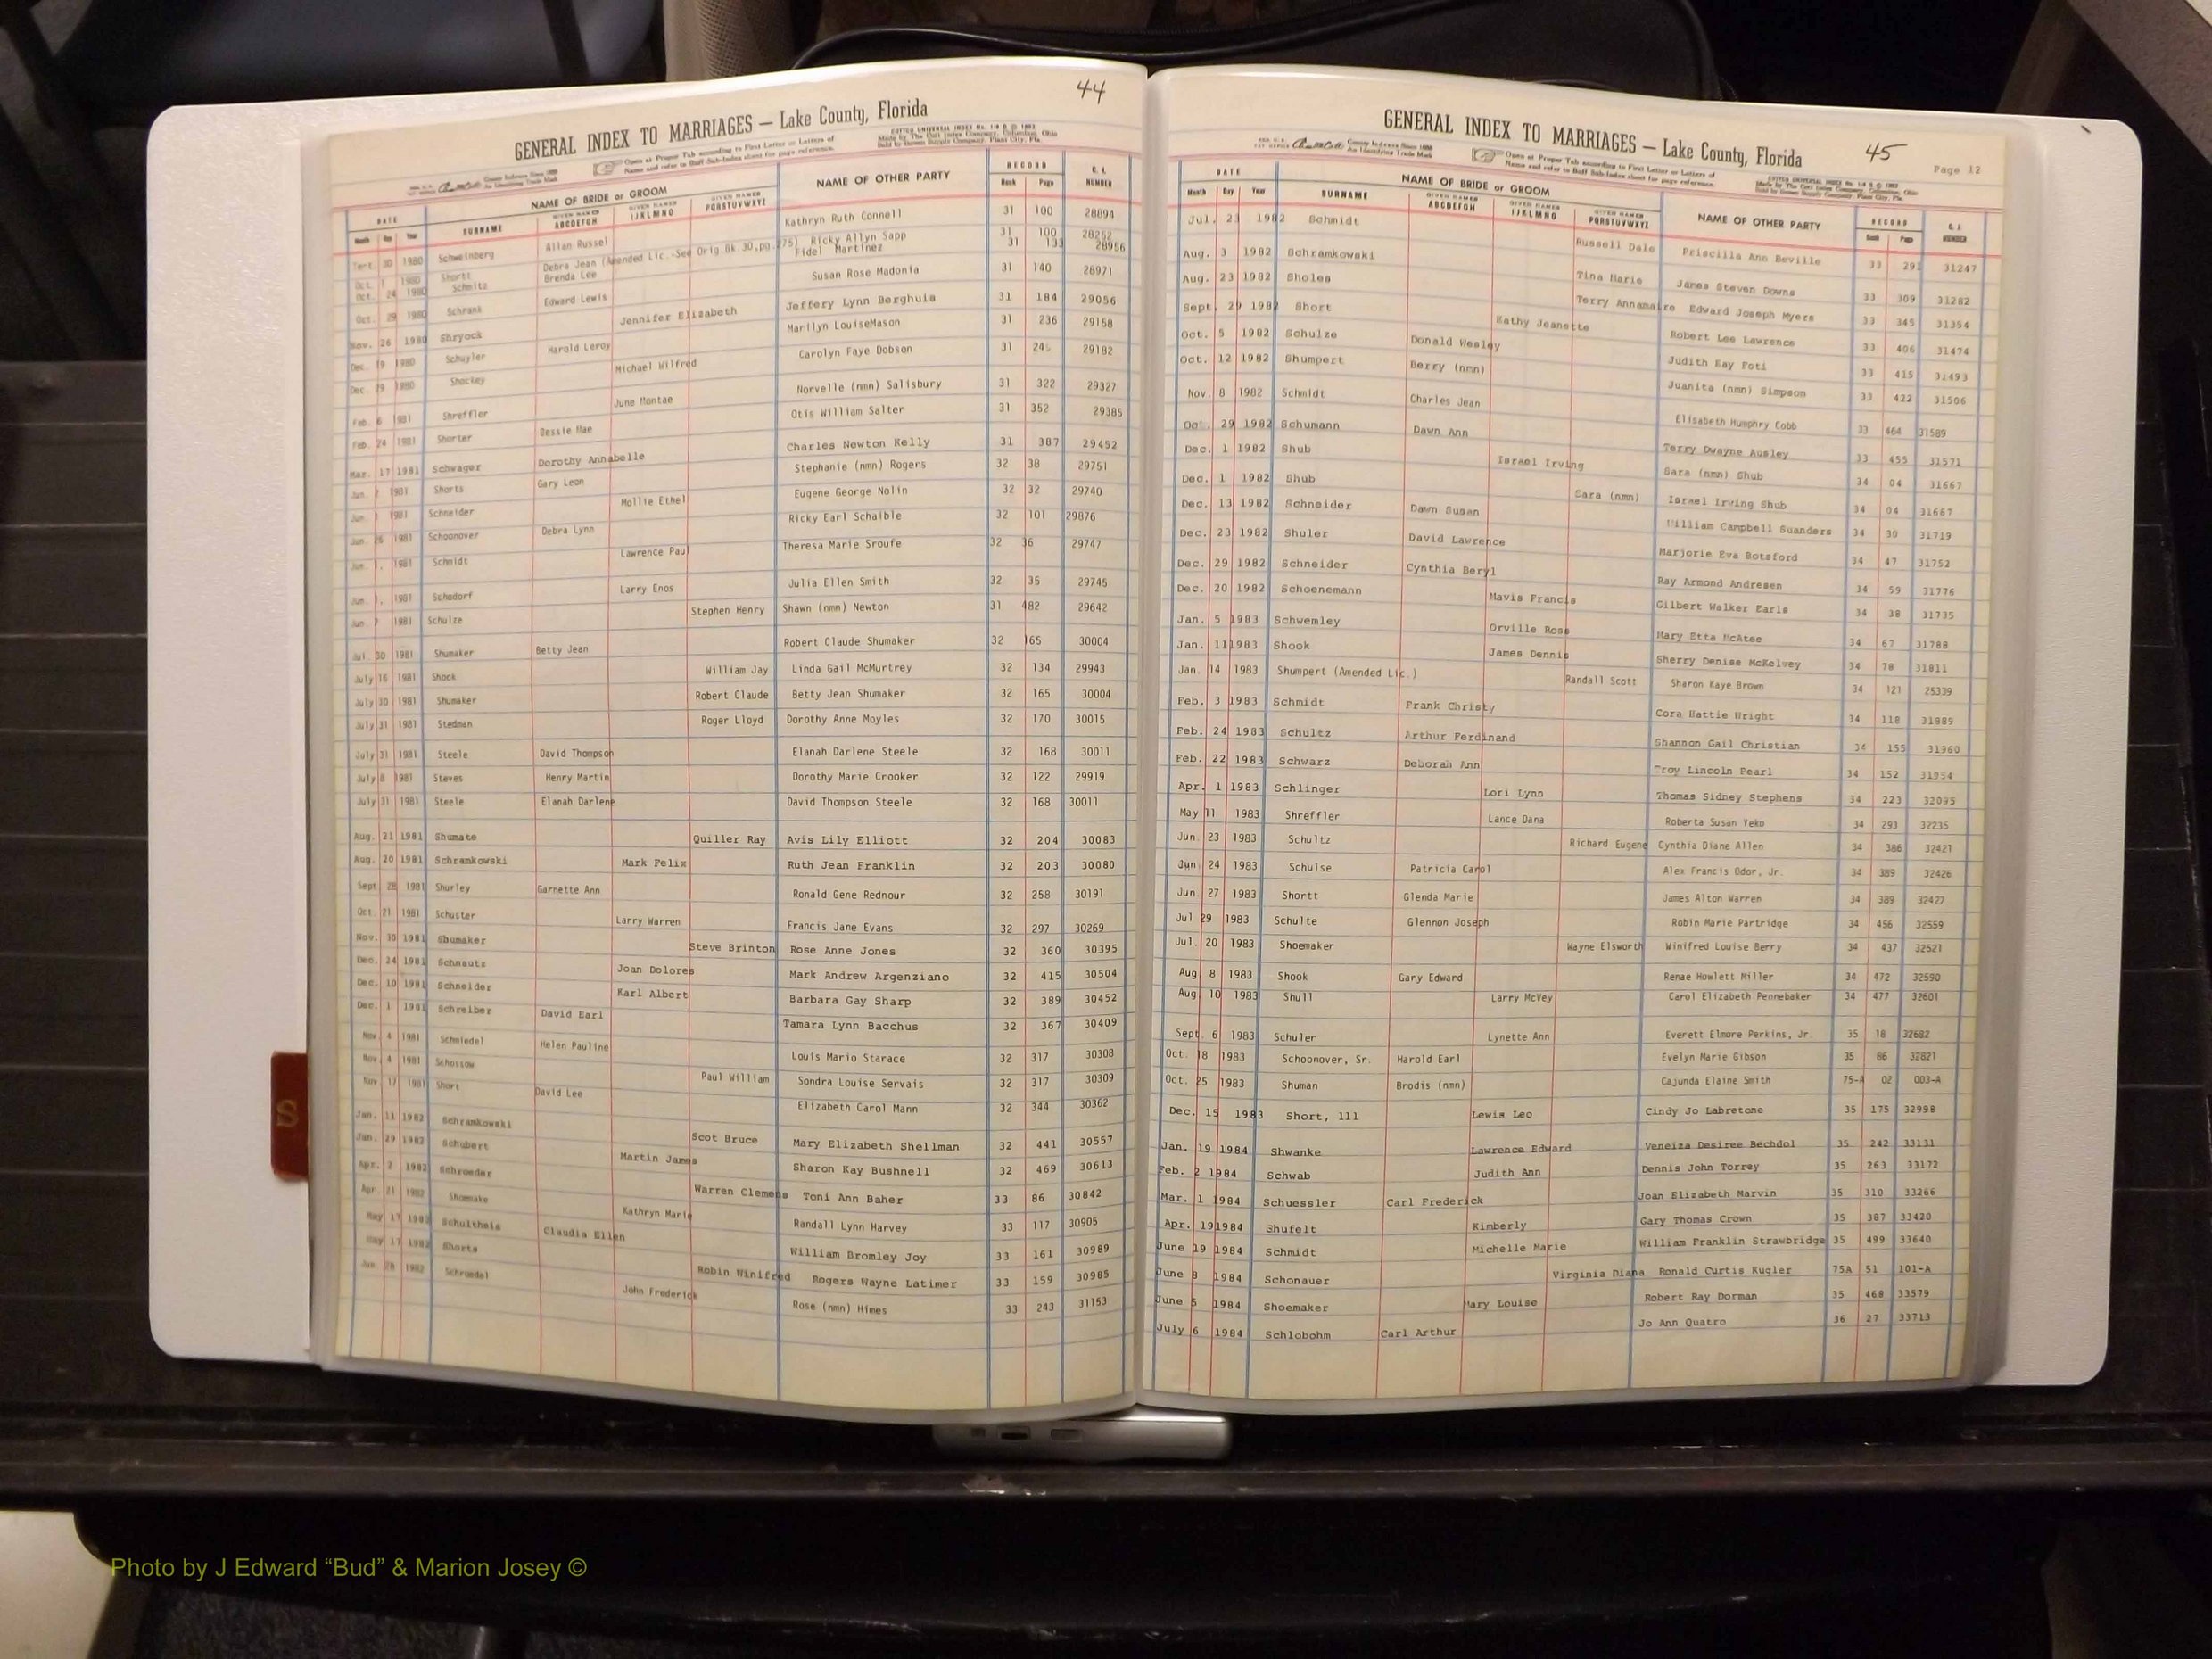 44
GENERAL INDEX TO MARRIAGES — Lake County, Florida
Open at Proper Tab according to First Letter or Letters of
Name and refer to Buff Sub-Index sheet for page reference.
DATE NAME OF BRIDE or GROOM NAME OF OTHER PARTY RECORD C. I. NUMBER
Month Day Year SURNAME GIVEN NAMES ABCDEFGH GIVEN NAMES IJKLMNO GIVEN NAMES PQRSTUVWXYZ Book Page
30 1980 Schweinberg Allan Russel Kathryn Ruth Connell 31 100 28894
Oct. 1 1980 Shortt Debra Jean (Amended Lic.-See Orig.Bk.30,pg.275) Ricky Allyn Sapp 31 100 28252
Oct. 24 1980 Schmitz Brenda Lee Fidel Martinez 31 133 28956
Oct. 29 1980 Schrank Edward Lewis Susan Rose Madonia 31 140 28971
Nov. 26 1980 Shryock Jennifer Elizabeth Jeffery Lynn Berghuis 31 184 29056
Dec. 19 1980 Schuyler Harold Leroy Marilyn LouiseMason 31 236 29158
Dec. 29 1980 Shockey Michael Wilfred Carolyn Faye Dobson 31 29182
Feb. 6 1981 Shreffler June Montae Norvelle (nmn) Salisbury 31 322 29327
Feb. 24 1981 Shorter Bessie Mae Otis William Salter 31 352 29385
Mar. 17 1981 Schwager Dorothy Annabelle Charles Newton Kelly 31 387 29452
Jun. 1981 Shorts Gary Leon Stephanie (nmn) Rogers 32 38 29751
Jun. 1981 Schneider Mollie Ethel Eugene George Nolin 32 32 29740
Jun. 25 1981 Schoonover Debra Lynn Ricky Earl Schaible 32 101 29876
Jun. 1981 Schmidt Lawrence Paul Theresa Marie Sroufe 32 36 29747
Jun. 1981 Schodorf Larry Enos Julia Ellen Smith 32 35 29745
Jun. 1981 Schulze Stephen Henry Shawn (nmn) Newton 31 482 29642
Jul. 30 1981 Shumaker Betty Jean Robert Claude Shumaker 32 165 30004
July 16 1981 Shook William Jay Linda Gail McMurtrey 32 134 29943
July 30 1981 Shumaker Robert Claude Betty Jean Shumaker 32 165 30004
July 31 1981 Stedman Roger Lloyd Dorothy Anne Moyles 32 170 30015
July 31 1981 Steele David Thompson Elanah Darlene Steele 32 168 30011
July 8 1981 Steves Henry Martin Dorothy Marie Crooker 32 122 29919
July 31 1981 Steele Elanah Darlene David Thompson Steele 32 168 30011
Aug. 21 1981 Shumate Quiller Ray Avis Lily Elliott 32 204 30083
Aug. 20 1981 Schramkowski Mark Felix Ruth Jean Franklin 32 203 30080
Sept 28 1981 Shurley Garnette Ann Ronald Gene Rednour 32 258 30191
Oct. 21 1981 Schuster Larry Warren Francis Jane Evans 32 297 30269
Nov. 30 1981 Shumaker Steve Brinton Rose Anne Jones 32 360 30395
Dec. 24 1981 Schnautz Joan Dolores Mark Andrew Argenziano 32 415 30504
Dec. 10 1981 Schneider Karl Albert Barbara Gay Sharp 32 389 30452
Dec. 1 1981 Schreiber David Earl Tamara Lynn Bacchus 32 367 30409
Nov. 4 1981 Schmiedel Helen Pauline Louis Mario Starace 32 317 30308
Nov. 4 1981 Schossow Paul William Sondra Louise Servais 32 317 30309
Nov. 17 1981 Short David Lee Elizabeth Carol Mann 32 344 30362
Jan. 11 1982 Schramkowski Scot Bruce Mary Elizabeth Shellman 32 441 30557
Jan. 29 1982 Schubert Martin James Sharon Kay Bushnell 32 469 30613
Apr. 2 1982 Schroeder Warren Clemens Toni Ann Baher 33 86 30842
Apr. 21 1982 Shoemake Kathryn Marie Randall Lynn Harvey 33 117 30905
May 17 1982 Schultheis Claudia Ellen William Bromley Joy 33 161 30989
May 17 1982 Shorta Robin Winifred Rogers Wayne Latimer 33 159 30985
Jun 28 1982 Schroedel John Frederick Rose (nmn) Himes 33 243 31153
S
45
Page 12
GENERAL INDEX TO MARRIAGES — Lake County, Florida
Open at Proper Tab according to First Letter or Letters of
Name and refer to Buff Sub-Index sheet for page reference.
DATE NAME OF BRIDE or GROOM NAME OF OTHER PARTY RECORD C. I. NUMBER
Month Day Year SURNAME GIVEN NAMES ABCDEFGH GIVEN NAMES IJKLMNO GIVEN NAMES PQRSTUVWXYZ Book Page
Jul. 23 1982 Schmidt Russell Dale Priscilla Ann Beville 33 291 31247
Aug. 3 1982 Schramkowski Tina Marie James Steven Downs 33 309 31282
Aug. 23 1982 Sholes Terry Annamaire Edward Joseph Myers 33 345 31354
Sept. 29 1982 Short Kathy Jeanette Robert Lee Lawrence 33 406 31474
Oct. 5 1982 Schulze Donald Wesley Judith Kay Poti 33 415 31493
Oct. 12 1982 Shumpert Berry (nmn) Juanita (nmn) Simpson 33 422 31506
Nov. 8 1982 Schmidt Charles Jean Elisabeth Humphry Cobb 33 464 31589
Oct. 29 1982 Schumann Dawn Ann Terry Dwayne Ausley 33 455 31571
Dec. 1 1982 Shub Israel Irving Sara (nmn) Shub 34 04 31667
Dec. 1 1982 Shub Sara (nmn) Israel Irving Shub 34 04 31667
Dec. 13 1982 Schneider Dawn Susan William Campbell Suanders 34 30 31719
Dec. 23 1982 Shuler David Lawrence Marjorie Eva Botsford 34 47 31752
Dec. 29 1982 Schneider Cynthia Beryl Ray Armond Andresen 34 59 31776
Dec. 20 1982 Schoenemann Mavis Francis Gilbert Walker Earls 34 38 31735
Jan. 5 1983 Schwemley Orville Rose Mary Etta McAtee 34 67 31788
Jan. 11 1983 Shook James Dennis Sherry Denise McKelvey 34 78 31811
Jan. 14 1983 Shumpert (Amended Lic.) Randall Scott Sharon Kaye Brown 34 121 25339
Feb. 3 1983 Schmidt Frank Christy Cora Hattie Wright 34 118 31889
Feb. 24 1983 Schultz Arthur Ferdinand Shannon Gail Christian 34 155 31960
Feb. 22 1983 Schwarz Deborah Ann Troy Lincoln Pearl 34 152 31954
Apr. 1 1983 Schlinger Lori Lynn Thomas Sidney Stephens 34 223 32095
May 11 1983 Shreffler Lance Dana Roberta Susan Yeko 34 293 32235
Jun. 23 1983 Schultz Richard Eugene Cynthia Diane Allen 34 386 32421
Jun 24 1983 Schulse Patricia Carol Alex Francis Odor, Jr. 34 389 32426
Jun. 27 1983 Shortt Glenda Marie James Alton Warren 34 389 32427
Jul 29 1983 Schulte Glennon Joseph Robin Marie Partridge 34 456 32559
Jul. 20 1983 Shoemaker Wayne Elsworth Winifred Louise Berry 34 437 32521
Aug 8 1983 Shook Gary Edward Renae Howlett Miller 34 472 32590
Aug 10 1983 Shull Larry McVey Carol Elizabeth Pennebaker 34 477 32601
Sept. 6 1983 Schuler Lynette Ann Everett Elmore Perkins, Jr. 35 18 32682
Oct. 18 1983 Schoonover, Sr. Harold Earl Evelyn Marie Gibson 35 86 32821
Oct. 25 1983 Shuman Brodis (nmn) Cajunda Elaine Smith 75-A 02 003-A
Dec. 15 1983 Short, 111 Lewis Leo Cindy Jo Labretone 35 175 32998
Jan. 19 1984 Shwanke Lawrence Edward Veneiza Desiree Bechdol 35 242 33131
Feb. 2 1984 Schwab Judith Ann Dennis John Torrey 35 263 33172
Mar. 1 1984 Schuessler Carl Frederick Joan Elizabeth Marvin 35 310 33266
Apr. 19 1984 Shufelt Kimberly Gary Thomas Crown 35 387 33420
June 19 1984 Schmidt Michelle Marie William Franklin Strawbridge 35 499 33640
June 8 1984 Schonauer Virginia Diana Ronald Curtis Kugler 75A 51 101-A
June 5 1984 Shoemaker Mary Louise Robert Ray Dorman 35 468 33579
July 6 1984 Schlobohm Carl Arthur Jo Ann Quatro 36 27 33713
Photo by J Edward “Bud” & Marion Josey ©